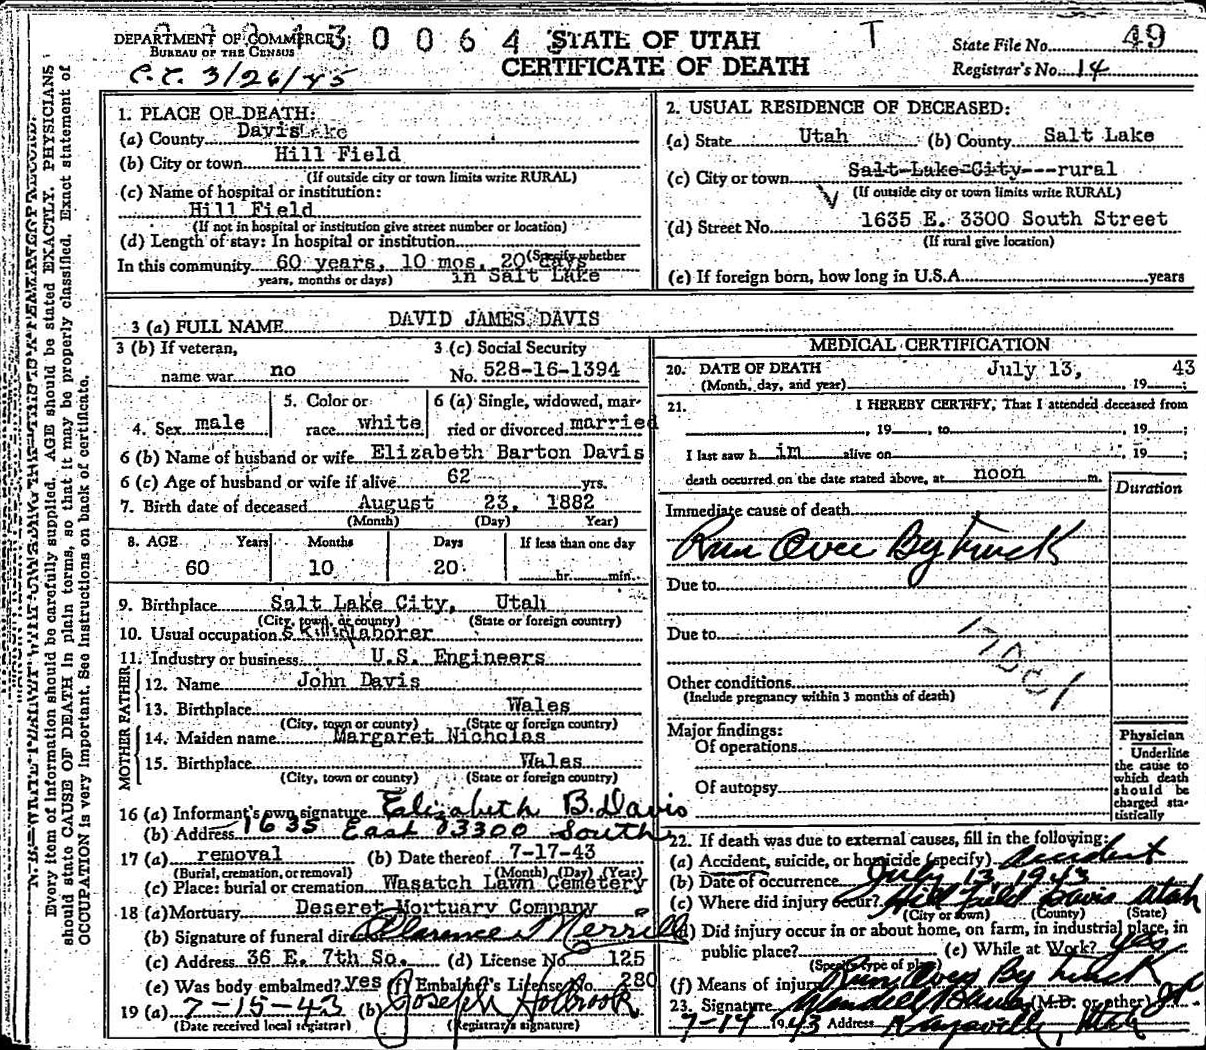 DEPARTMENT OF COMMERCE
BUREAU OF THE CENSUS
3 0 0 6 4
C.C. 3/26/45
STATE OF UTAH
CERTIFICATE OF DEATH
T
State File No. 49
Registrar's No. 14
Every item of information should be carefully supplied. AGE should be stated EXACTLY. PHYSICIANS
should state CAUSE OF DEATH in plain terms, so that it may be properly classified. Exact statement of
OCCUPATION is very important. See instructions on back of certificate.
1. PLACE OF DEATH:
(a) County Davis
(b) City or town Hill Field
(If outside city or town limits write RURAL)
(c) Name of hospital or institution:
Hill Field
(If not in hospital or institution give street number or location)
(d) Length of stay: In hospital or institution
(Specify whether
In this community 60 years, 10 mos. 20 days
years, months or days) in Salt Lake
2. USUAL RESIDENCE OF DECEASED:
(a) State Utah (b) County Salt Lake
(c) City or town Salt Lake City---rural
(If outside city or town limits write RURAL)
(d) Street No. 1635 E. 3300 South Street
(If rural give location)
(e) If foreign born, how long in U.S.A. years
3 (a) FULL NAME DAVID JAMES DAVIS
3 (b) If veteran,
name war no
3 (c) Social Security
No. 528-16-1394
4. Sex male
5. Color or
race white
6 (a) Single, widowed, mar-
ried or divorced married
6 (b) Name of husband or wife Elizabeth Barton Davis
6 (c) Age of husband or wife if alive 62 yrs.
7. Birth date of deceased August 23, 1882
(Month) (Day) Year)
8. AGE Years Months Days If less than one day
60 10 20 hr. min.
9. Birthplace Salt Lake City, Utah
(City, town, or county) (State or foreign country)
10. Usual occupation laborer
11. Industry or business U.S. Engineers
FATHER
12. Name John Davis
13. Birthplace Wales
(City, town or county) (State or foreign country)
MOTHER
14. Maiden name Margaret Nicholas
15. Birthplace Wales
(City, town or county) (State or foreign country)
16 (a) Informant's own signature Elizabeth B. Davis
(b) Address 1635 East 3300 South
17 (a) removal (b) Date thereof 7-17-43
(Burial, cremation, or removal) (Month) (Day) (Year)
(c) Place: burial or cremation Wasatch Lawn Cemetery
18 (a) Mortuary Deseret Mortuary Company
(b) Signature of funeral director Clarence Merrill
(c) Address 36 E. 7th So. (d) License No. 125
(e) Was body embalmed? yes (f) Embalmer's License No. 280
19 (a) 7-15-43 (b) Joseph Holbrook
(Date received local registrar) (Registrar's signature)
MEDICAL CERTIFICATION
20. DATE OF DEATH July 13, 43
(Month, day, and year) , 19 ;
21. I HEREBY CERTIFY, That I attended deceased from
, 19 , to , 19 ;
I last saw h im alive on , 19 ;
death occurred on the date stated above, at noon m.
Duration
Immediate cause of death
Run Over By truck
Due to
Due to
Other conditions
(Include pregnancy within 3 months of death)
Major findings:
Of operations
Of autopsy
Physician
Underline
the cause to
which death
should be
charged sta-
tistically
22. If death was due to external causes, fill in the following:
(a) Accident, suicide, or homicide (specify) Accident
(b) Date of occurrence July 13 1943
(c) Where did injury occur? Hill Field Davis Utah
(City or town) (County) (State)
(d) Did injury occur in or about home, on farm, in industrial place, in
public place? (e) While at Work? yes
(Specify type of place)
(f) Means of injury Run Over By truck
23. Signature (M.D. or other)
7-14 1943 Address Kaysville, Utah